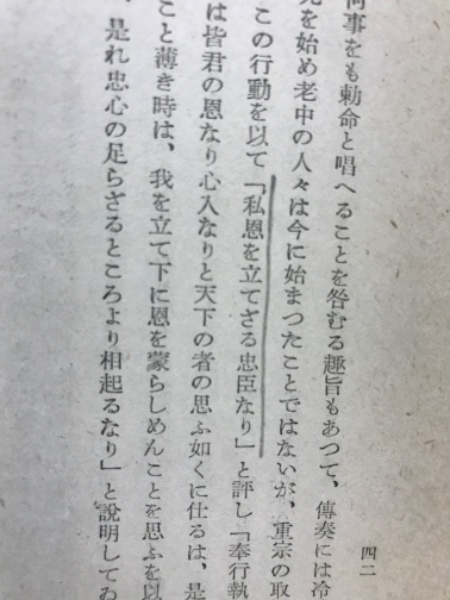 何事をも勅命と唱へることを咎むる趣旨もあつて、傳奏には冷
を始め老中の人々は今に始まつたことではないが、重宗の取
この行動を以て「私恩を立てざる忠臣なり」と評し「奉行執
は皆君の恩なり心入なりと天下の者の思ふ如くに仕るは、是
こと薄き時は、我を立て下に恩を蒙らしめんことを思ふを以
、是れ忠心の足らざるところより相起るなり」と說明してゐ
四二